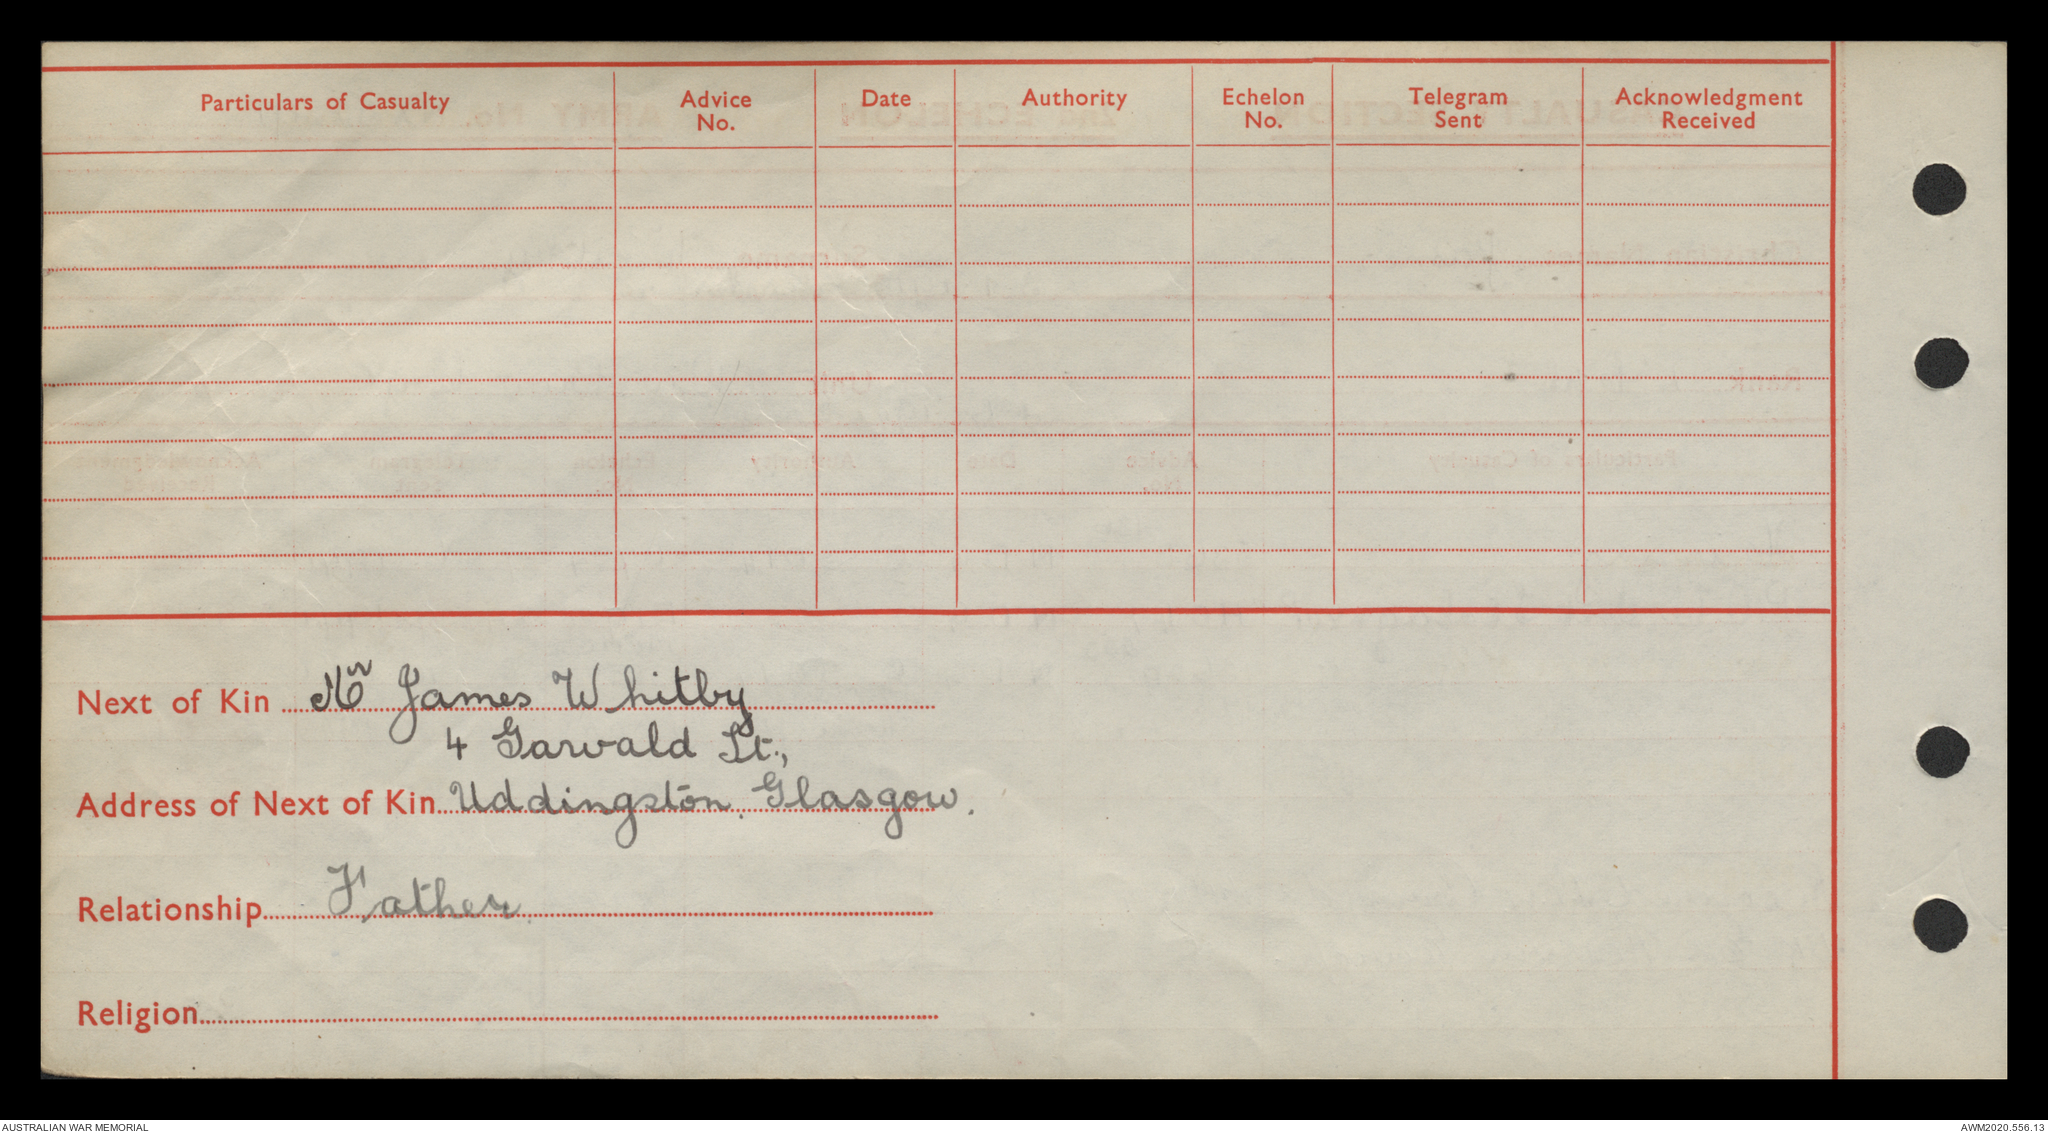 Particulars of Casualty Advice No. Date Authority Echelon No. Telegram Sent Acknowledgment Received
Next of Kin Mr James Whitby
4 Garvald St.,
Address of Next of Kin Uddingston. Glasgow.
Relationship Father
Religion
AUSTRALIAN WAR MEMORIAL AWM2020.556.13